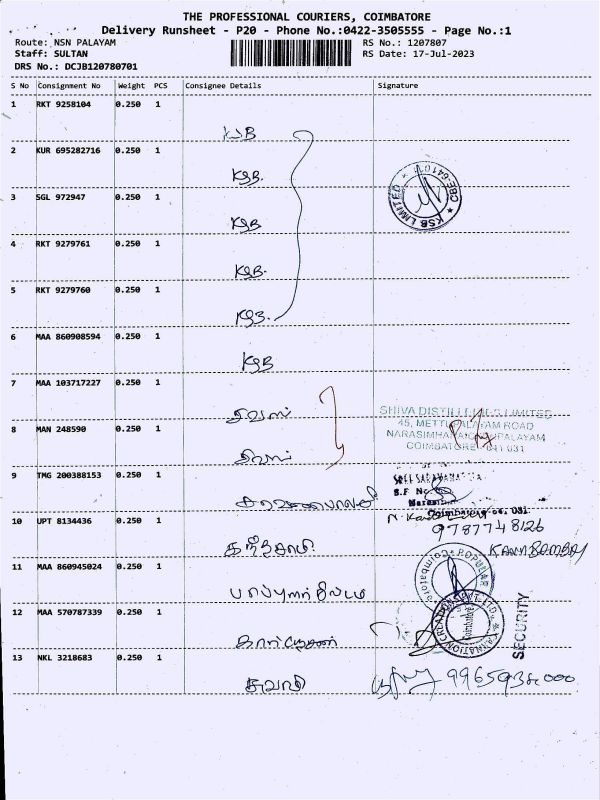 THE PROFESSIONAL COURIERS, COIMBATORE
Delivery Runsheet - P20 - Phone No.:0422-3505555 - Page No.:1
Route: NSN PALAYAM RS No.: 1207807
Staff: SULTAN RS Date: 17-Jul-2023
DRS No.: DCJB120780701
S No Consignment No Weight PCS Consignee Details Signature
1 RKT 9258104 0.250 1
2 KUR 695282716 0.250 1 KSB.
3 SGL 972947 0.250 1 KSB
KSB LIMITED ★ CBE-641031 ★
4 RKT 9279761 0.250 1 KSB.
5 RKT 9279760 0.250 1 KSB.
6 MAA 860908594 0.250 1 KSB
7 MAA 103717227 0.250 1 சிவாஸ்
SHIVA DISTILLERIES LIMITED
45, METTUPALAYAM ROAD
NARASIMHANAICKENPALAYAM
COIMBATORE - 641 031
8 MAN 248590 0.250 1 சிவாஸ்
9 TMG 200388153 0.250 1
S.F No
Coimbatore 031
9787748126
10 UPT 8134436 0.250 1 கந்தசாமி
11 MAA 860945024 0.250 1
POPULAR Coimbatore
12 MAA 570787339 0.250 1
KARNATION CREATION PVT. LTD. Coimbatore
SECURITY
13 NKL 3218683 0.250 1